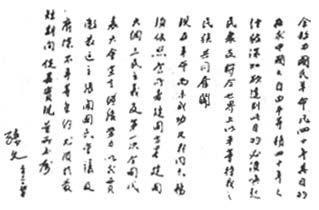 余致力國民革命凡四十年其目的
在求中國之自由平等積四十年之
經驗深知欲達到此目的必須喚起
民衆及聯合世界上以平等待我之
民族共同奮鬥
現在革命尚未成功凡我同志務
須依照余所著建國方略建國
大綱三民主義及第一次全國代
表大會宣言繼續努力以求貫
徹最近主張開國民會議及
廢除不平等條約尤須於最
短期間促其實現是所至囑
孫文